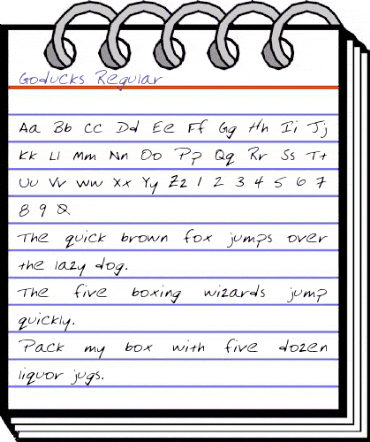 Goducks Regular
Aa Bb Cc Dd Ee Ff Gg Hh Ii Jj
Kk Ll Mm Nn Oo Pp Qq Rr Ss Tt
Uu Vv Ww Xx Yy Zz 1 2 3 4 5 6 7
8 9 0
The quick brown fox jumps over
the lazy dog.
The five boxing wizards jump
quickly.
Pack my box with five dozen
liquor jugs.